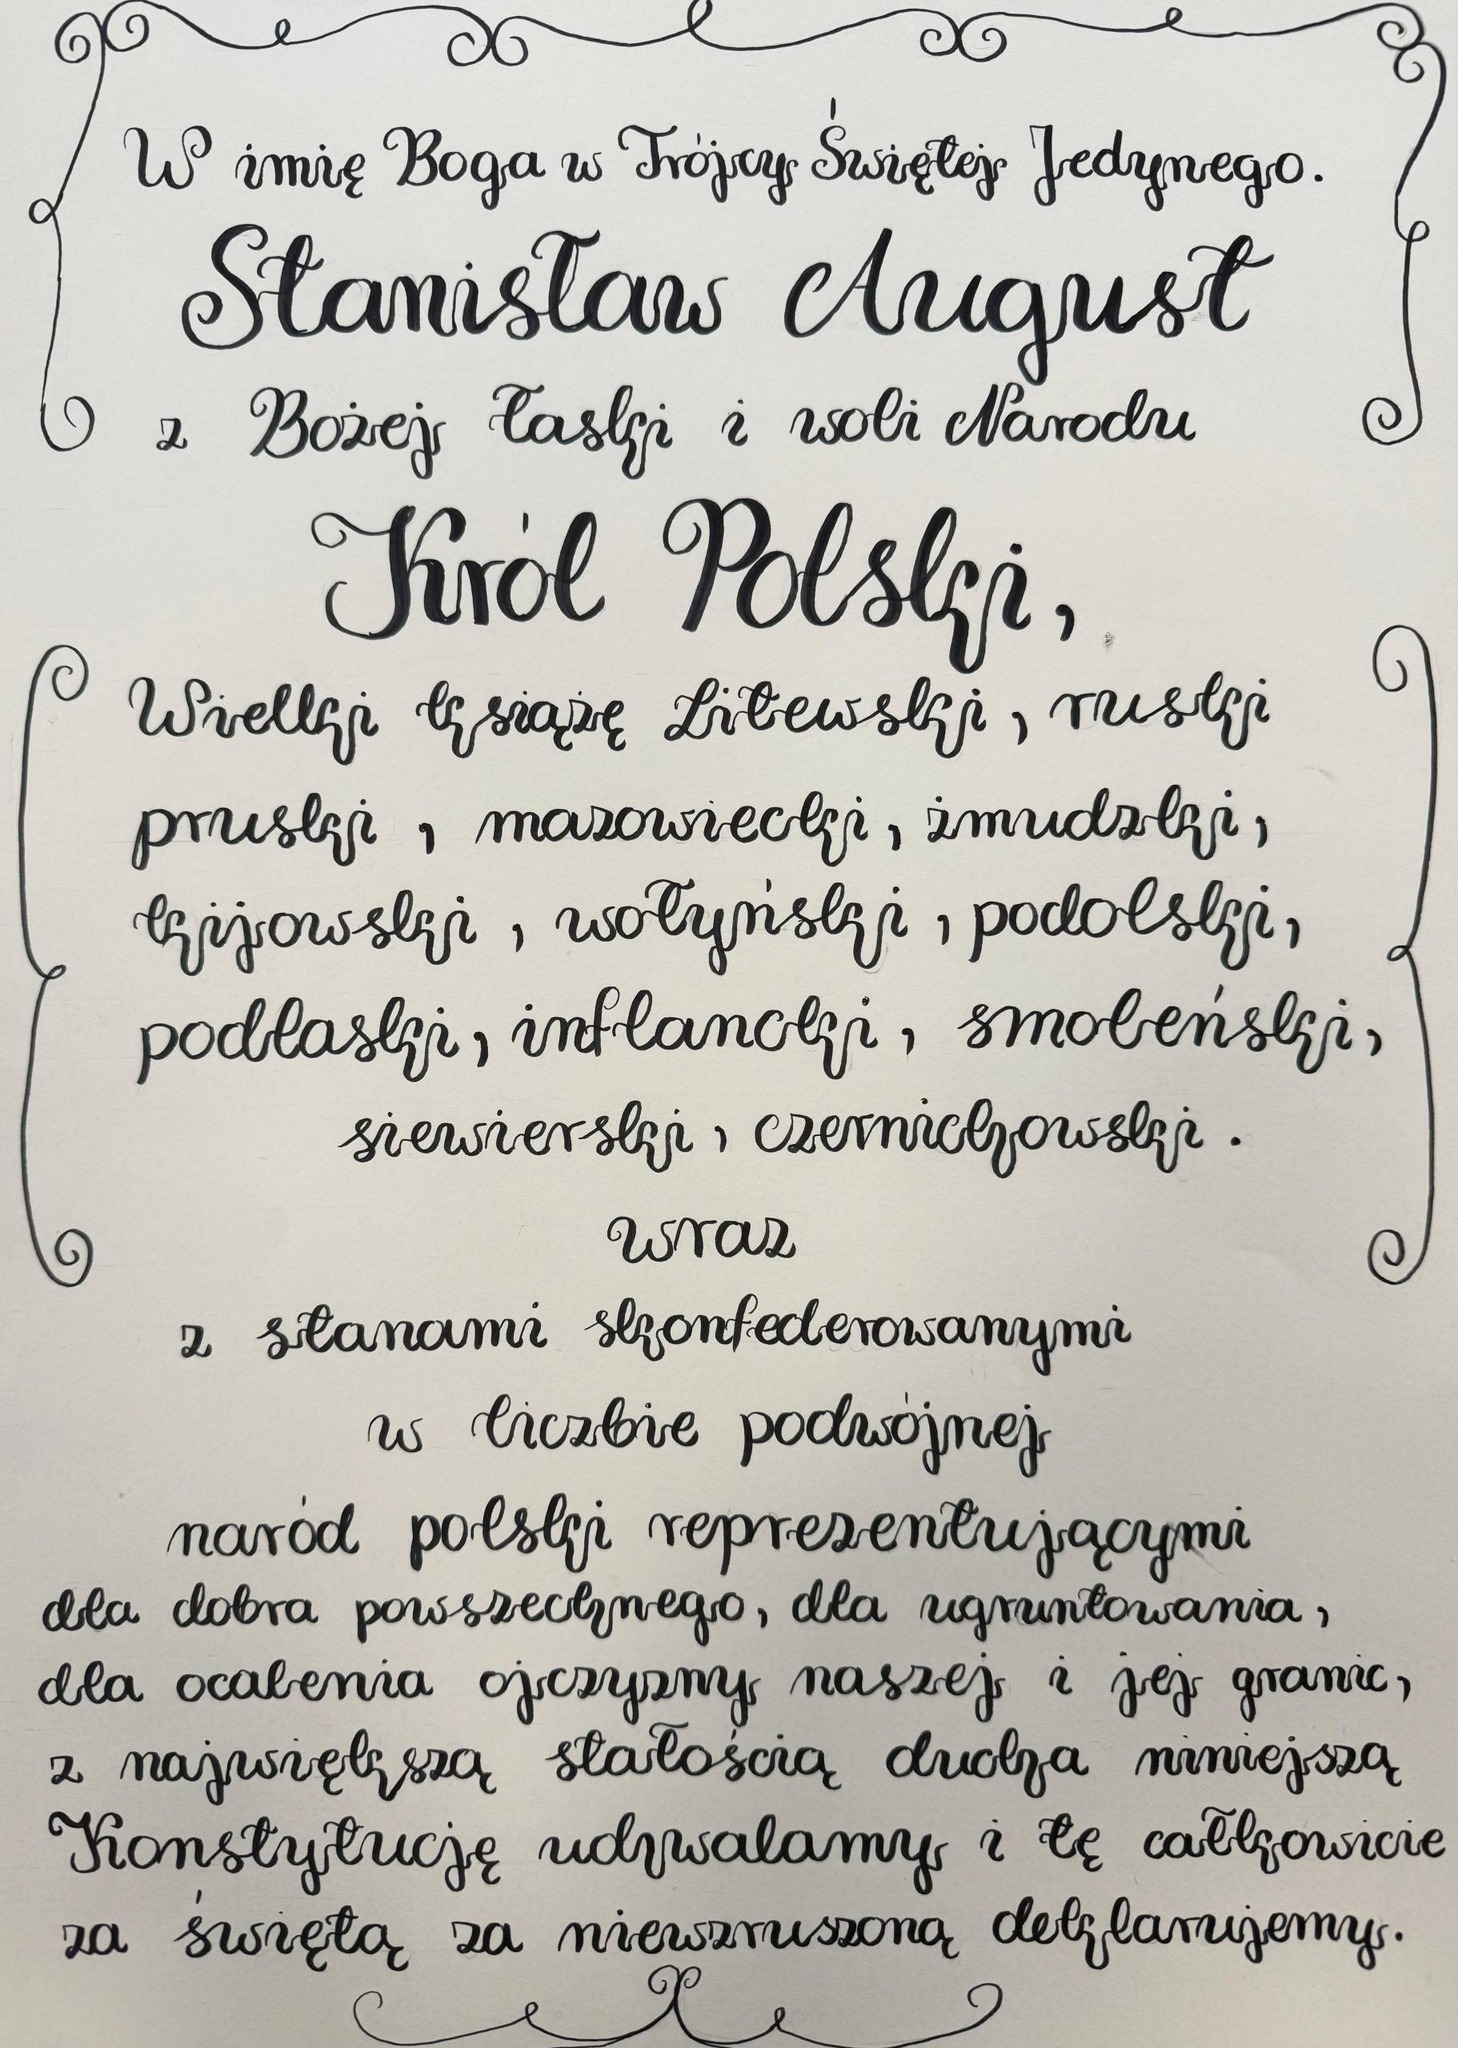 W imię Boga w Trójcy Świętej Jedynego.
Stanisław August
z Bożej łaski i woli Narodu
Król Polski,
Wielki książę Litewski, ruski
pruski, mazowiecki, żmudzki,
kijowski, wołyński, podolski,
podlaski, inflancki, smoleński,
siewierski, czernichowski.
wraz
z stanami skonfederowanymi
w liczbie podwójnej
naród polski reprezentującymi
dla dobra powszechnego, dla ugruntowania,
dla ocalenia ojczyzny naszej i jej granic,
z największą stałością ducha niniejszą
Konstytucję uchwalamy i tę całkowicie
za świętą za niewzruszoną deklarujemy.